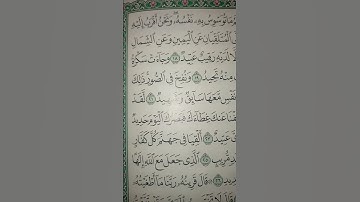 مَا تُوَسْوِسُ بِهِۦ نَفْسُهُۥ وَنَحْنُ أَقْرَبُ إِلَيْهِ
ٱلْمُتَلَقِّيَانِ عَنِ ٱلْيَمِينِ وَعَنِ ٱلشِّمَالِ
لَّا لَدَيْهِ رَقِيبٌ عَتِيدٌ ١٨ وَجَآءَتْ سَكْرَةُ
مِنْهُ تَحِيدُ ١٩ وَنُفِخَ فِي ٱلصُّورِ ذَٰلِكَ
نَفْسٍ مَّعَهَا سَآئِقٌ وَشَهِيدٌ ٢١ لَّقَدْ
فْنَا عَنكَ غِطَآءَكَ فَبَصَرُكَ ٱلْيَوْمَ حَدِيدٌ
عَتِيدٌ ٢٣ أَلْقِيَا فِي جَهَنَّمَ كُلَّ كَفَّارٍ
مُّرِيبٍ ٢٥ ٱلَّذِي جَعَلَ مَعَ ٱللَّهِ إِلَٰهًا
دِيدِ ٢٦ قَالَ قَرِينُهُۥ رَبَّنَا مَآ أَطْغَيْتُهُۥ
قَالَ لَا